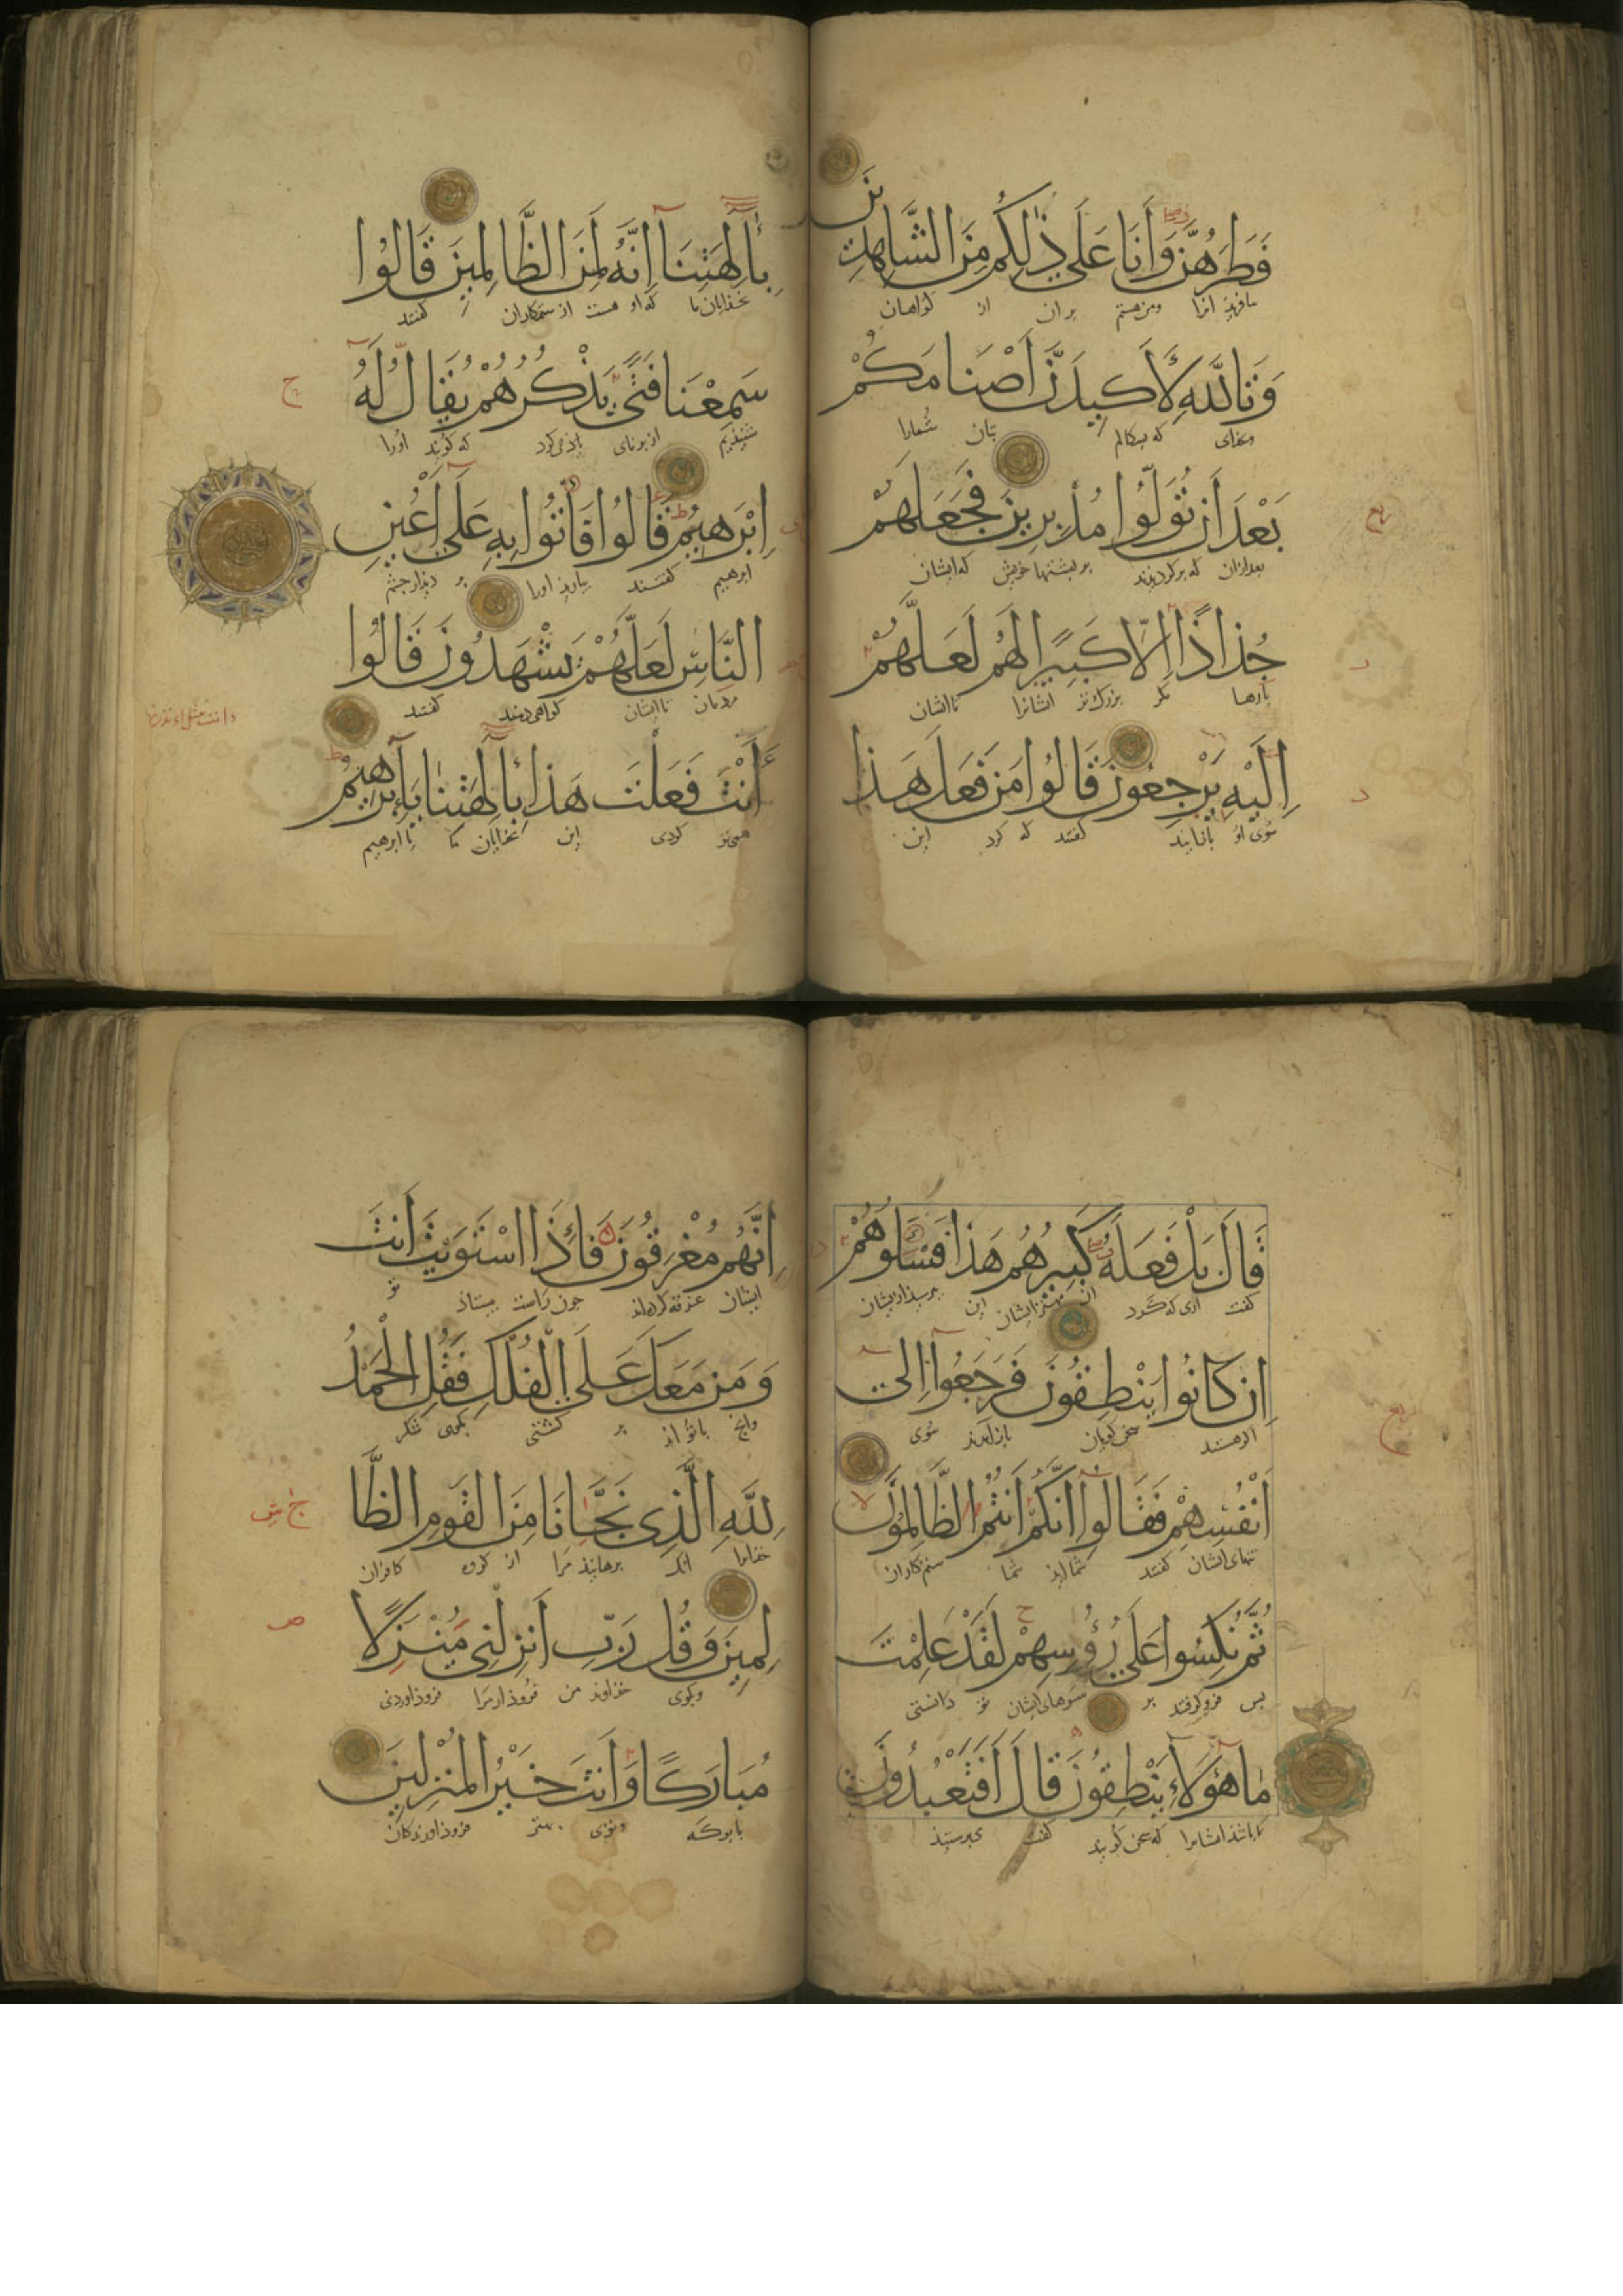 فَطَرَهُنَّ وَأَنَا عَلَى ذٰلِكُم مِنَ الشَّاهِدِينَ
بیافرید انرا ومن هستم بر ان از کواهان
وَتَاللَّهِ لَأَكِيدَنَّ أَصْنَامَكُمْ
وبخدای که بسکالم بتان شمارا
بَعْدَ أَن تُوَلُّوا مُدْبِرِينَ فَجَعَلَهُمْ
بعدازان که برکردیدند بر بشتهاخویش که ایشان
جُذَاذًا إِلَّا كَبِيرًا لَهُمْ لَعَلَّهُمْ
بارها مکر بزرک تر ایشانرا تا ایشان
إِلَيْهِ يَرْجِعُونَ قَالُوا مَن فَعَلَ هَذَا
سوی او بازایند کفتند که کرد این
بِآلِهَتِنَا إِنَّهُ لَمِنَ الظَّالِمِينَ قَالُوا
بخدایان ما که او هست از ستمکاران کفتند
سَمِعْنَا فَتًى يَذْكُرُهُمْ يُقَالُ لَهُ
شنیذیم از برنای یاذ می کرد که کویند اورا
إِبْرَهِيمُ قَالُوا فَأْتُوا بِهِ عَلَى أَعْيُنِ
ابرهیم کفتند بیارید اورا بر دیدار جشم
النَّاسِ لَعَلَّهُمْ يَشْهَدُونَ قَالُوا
مردمان تا ایشان کواهی دهند کفتند
ءَأَنْتَ فَعَلْتَ هَذَا بِآلِهَتِنَا يَا إِبْرَهِيمُ
تو کردی این بخدایان ما یا ابرهیم
قَالَ بَلْ فَعَلَهُ كَبِيرُهُمْ هَذَا فَسْـَٔلُوهُمْ
کفت اری که کرد ان مهتر ایشان این ببرسید ازیشان
إِن كَانُوا يَنْطِقُونَ فَرَجَعُوا إِلَى
اکرهستند سخن کویان بازامدند سوی
أَنْفُسِهِمْ فَقَالُوا إِنَّكُمْ أَنْتُمُ الظَّالِمُونَ
تنهای ایشان کفتند شما اید شما ستمکاران
ثُمَّ نُكِسُوا عَلَى رُءُوسِهِمْ لَقَدْ عَلِمْتَ
بس فروکرفتند بر سرهای ایشان تو دانستی
مَا هَؤُلَاءِ يَنْطِقُونَ قَالَ أَفَتَعْبُدُونَ
که سخن کویند کفت می برستید
إِنَّهُم مُغْرَقُونَ فَإِذَا اسْتَوَيْتَ أَنتَ
ایشان غرقه کرده اند جون راست بیستاذ تو
وَمَن مَعَكَ عَلَى الْفُلْكِ فَقُلِ الْحَمْدُ
وانج باتو اند بر کشتی بکوی شکر
لِلَّهِ الَّذِي نَجَّانَا مِنَ الْقَوْمِ الظَّا
خذایرا انک برهانیذ مرا از کروه کافران
لِمِينَ وَقُل رَبِّ أَنزِلْنِي مُنْزَلًا
وبکوی خذاوند من فروذ ار مرا فروذ اوردنی
مُبَارَكًا وَأَنتَ خَيْرُ الْمُنْزِلِينَ
بابرکه وتوی بهتر فروذ اورندکان